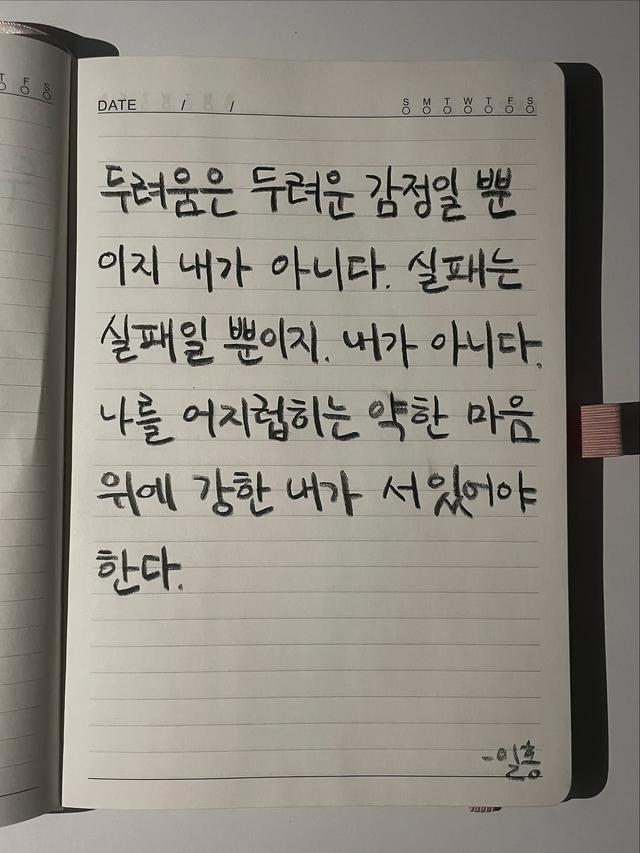 DATE / / S M T W T F S
두려움은 두려운 감정일 뿐
이지 내가 아니다. 실패는
실패일 뿐이지. 내가 아니다.
나를 어지럽히는 약한 마음
위에 강한 내가 서있어야
한다.
-일홍
T F S